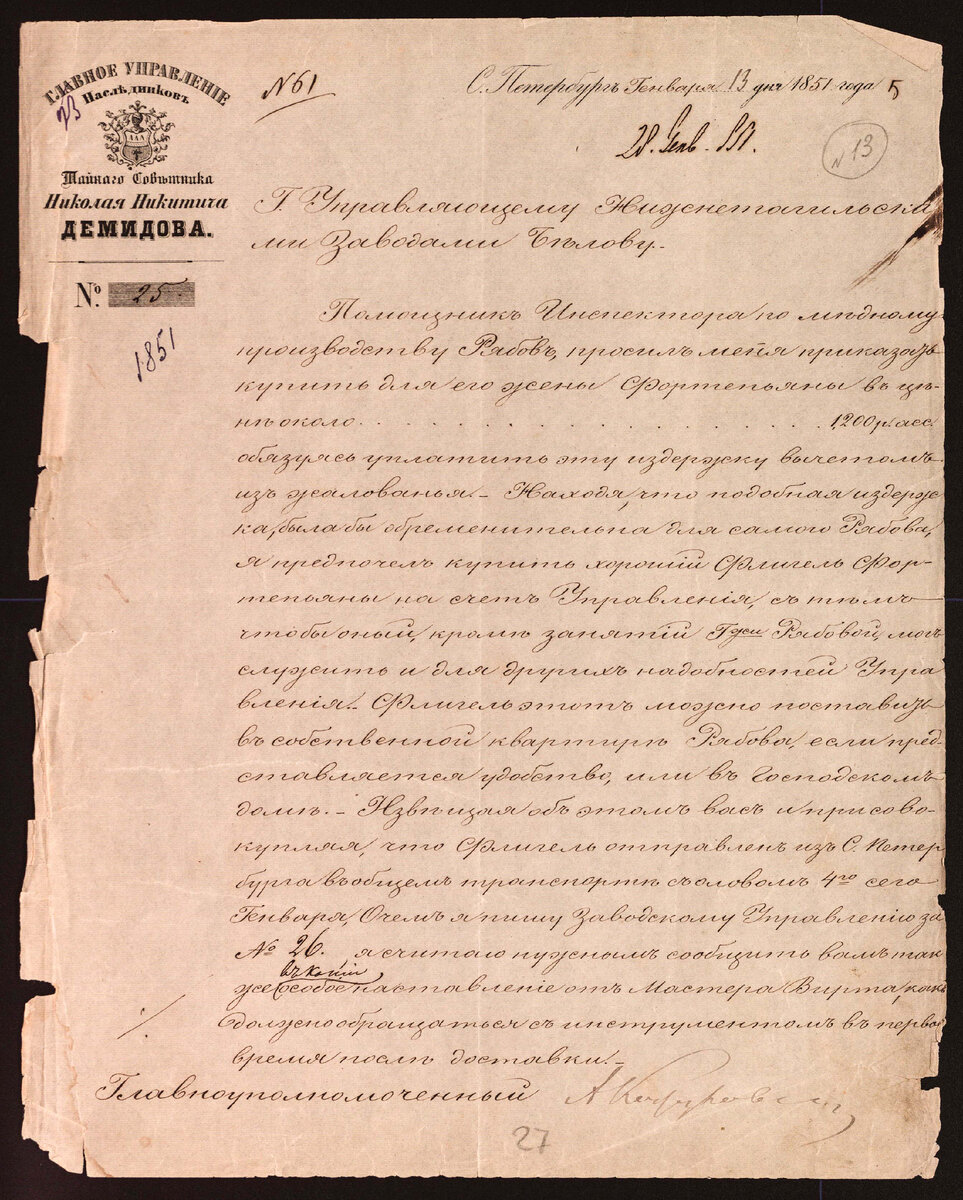 ГЛАВНОЕ УПРАВЛЕНІЕ
Наслѣдниковъ
Тайнаго Совѣтника
Николая Никитича
ДЕМИДОВА.
№. 25.
1851
73
№ 61
С. Петербургъ Генваря 13 дня 1851 года
5
28. Генв. 851.
N 13
Г. Управляющему Нижнетагильски
ми Заводами Бѣлову.
Помощникъ Инспектора по мѣдному
производству Рябовъ, просилъ меня приказать
купить для его жены Фортепьяны въ цѣ-
нѣ около . . . . . . . . . . . . . . 1,200 р. асс.
обязуясь уплатить эту издержку вычетомъ
изъ жалованья. – Находя, что подобная издерж
ка, была бы обременительна для самого Рябова,
я предпочелъ купить хорошій Флигель Фор-
тепьяны на счетъ Управленія, съ тѣмъ
чтобы оный, кромѣ занятій Гжи Рябовой, могъ
служить и для другихъ надобностей Упра
вленія. – Флигель этотъ можно поставить
въ собственной квартирѣ Рябова, если пред-
ставляется удобство, или въ Господскомъ
домѣ. – Извѣщая объ этомъ васъ и присово-
купляя, что Флигель отправленъ изъ С. Петер
бурга въ общемъ транспортѣ съ оловомъ 4го сего
Генваря, О чемъ я пишу Заводскому Управленію за
№ 26. я считаю нужнымъ сообщить вамъ так
въ копіи
же особое наставленіе отъ Мастера Вирта, какъ
должно обращаться съ инструментомъ въ перво
время послѣ доставки. –
Главноуполномоченный
27